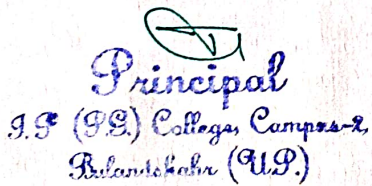 Principal
I.P (P.G.) College, Campus-2,
Bulandshahr (U.P.)